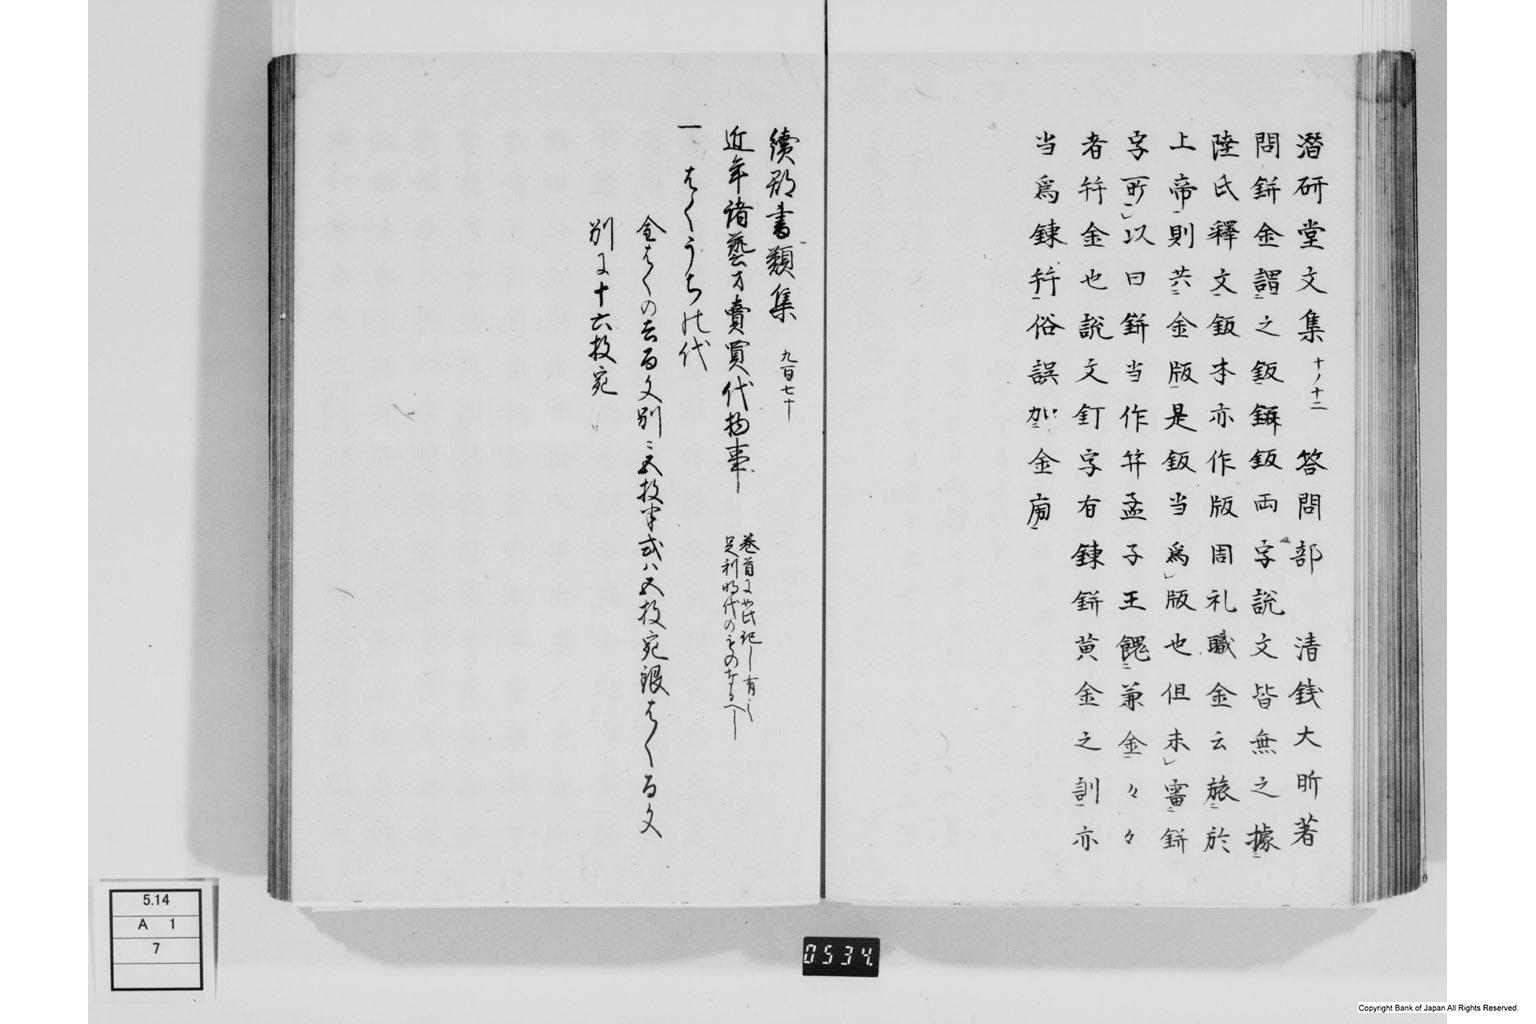 潜研堂文集 十ノ十二 答問部 清銭大昕著
問鉼金謂之鈑鉼鈑両字説文皆無之據
陸氏釋文鈑本亦作版周礼職金云旅於
上帝則共金版是鈑当為版也但未審鉼
字所以曰鉼当作笄孟子王餽兼金々々
者笄金也説文釘字有錬鉼黄金之訓亦
当為錬笄俗誤加金㫄
續群書類集 九百七十
近年諸藝方賣買代物事
巻首に
足利時代のものなるへし
一 はくうちの代
金はくの吉百文別ニ五枚半或ハ五枚宛銀はく百文
別に十六枚宛
5.14
A 1
7
0534
Copyright Bank of Japan All Rights Reserved.